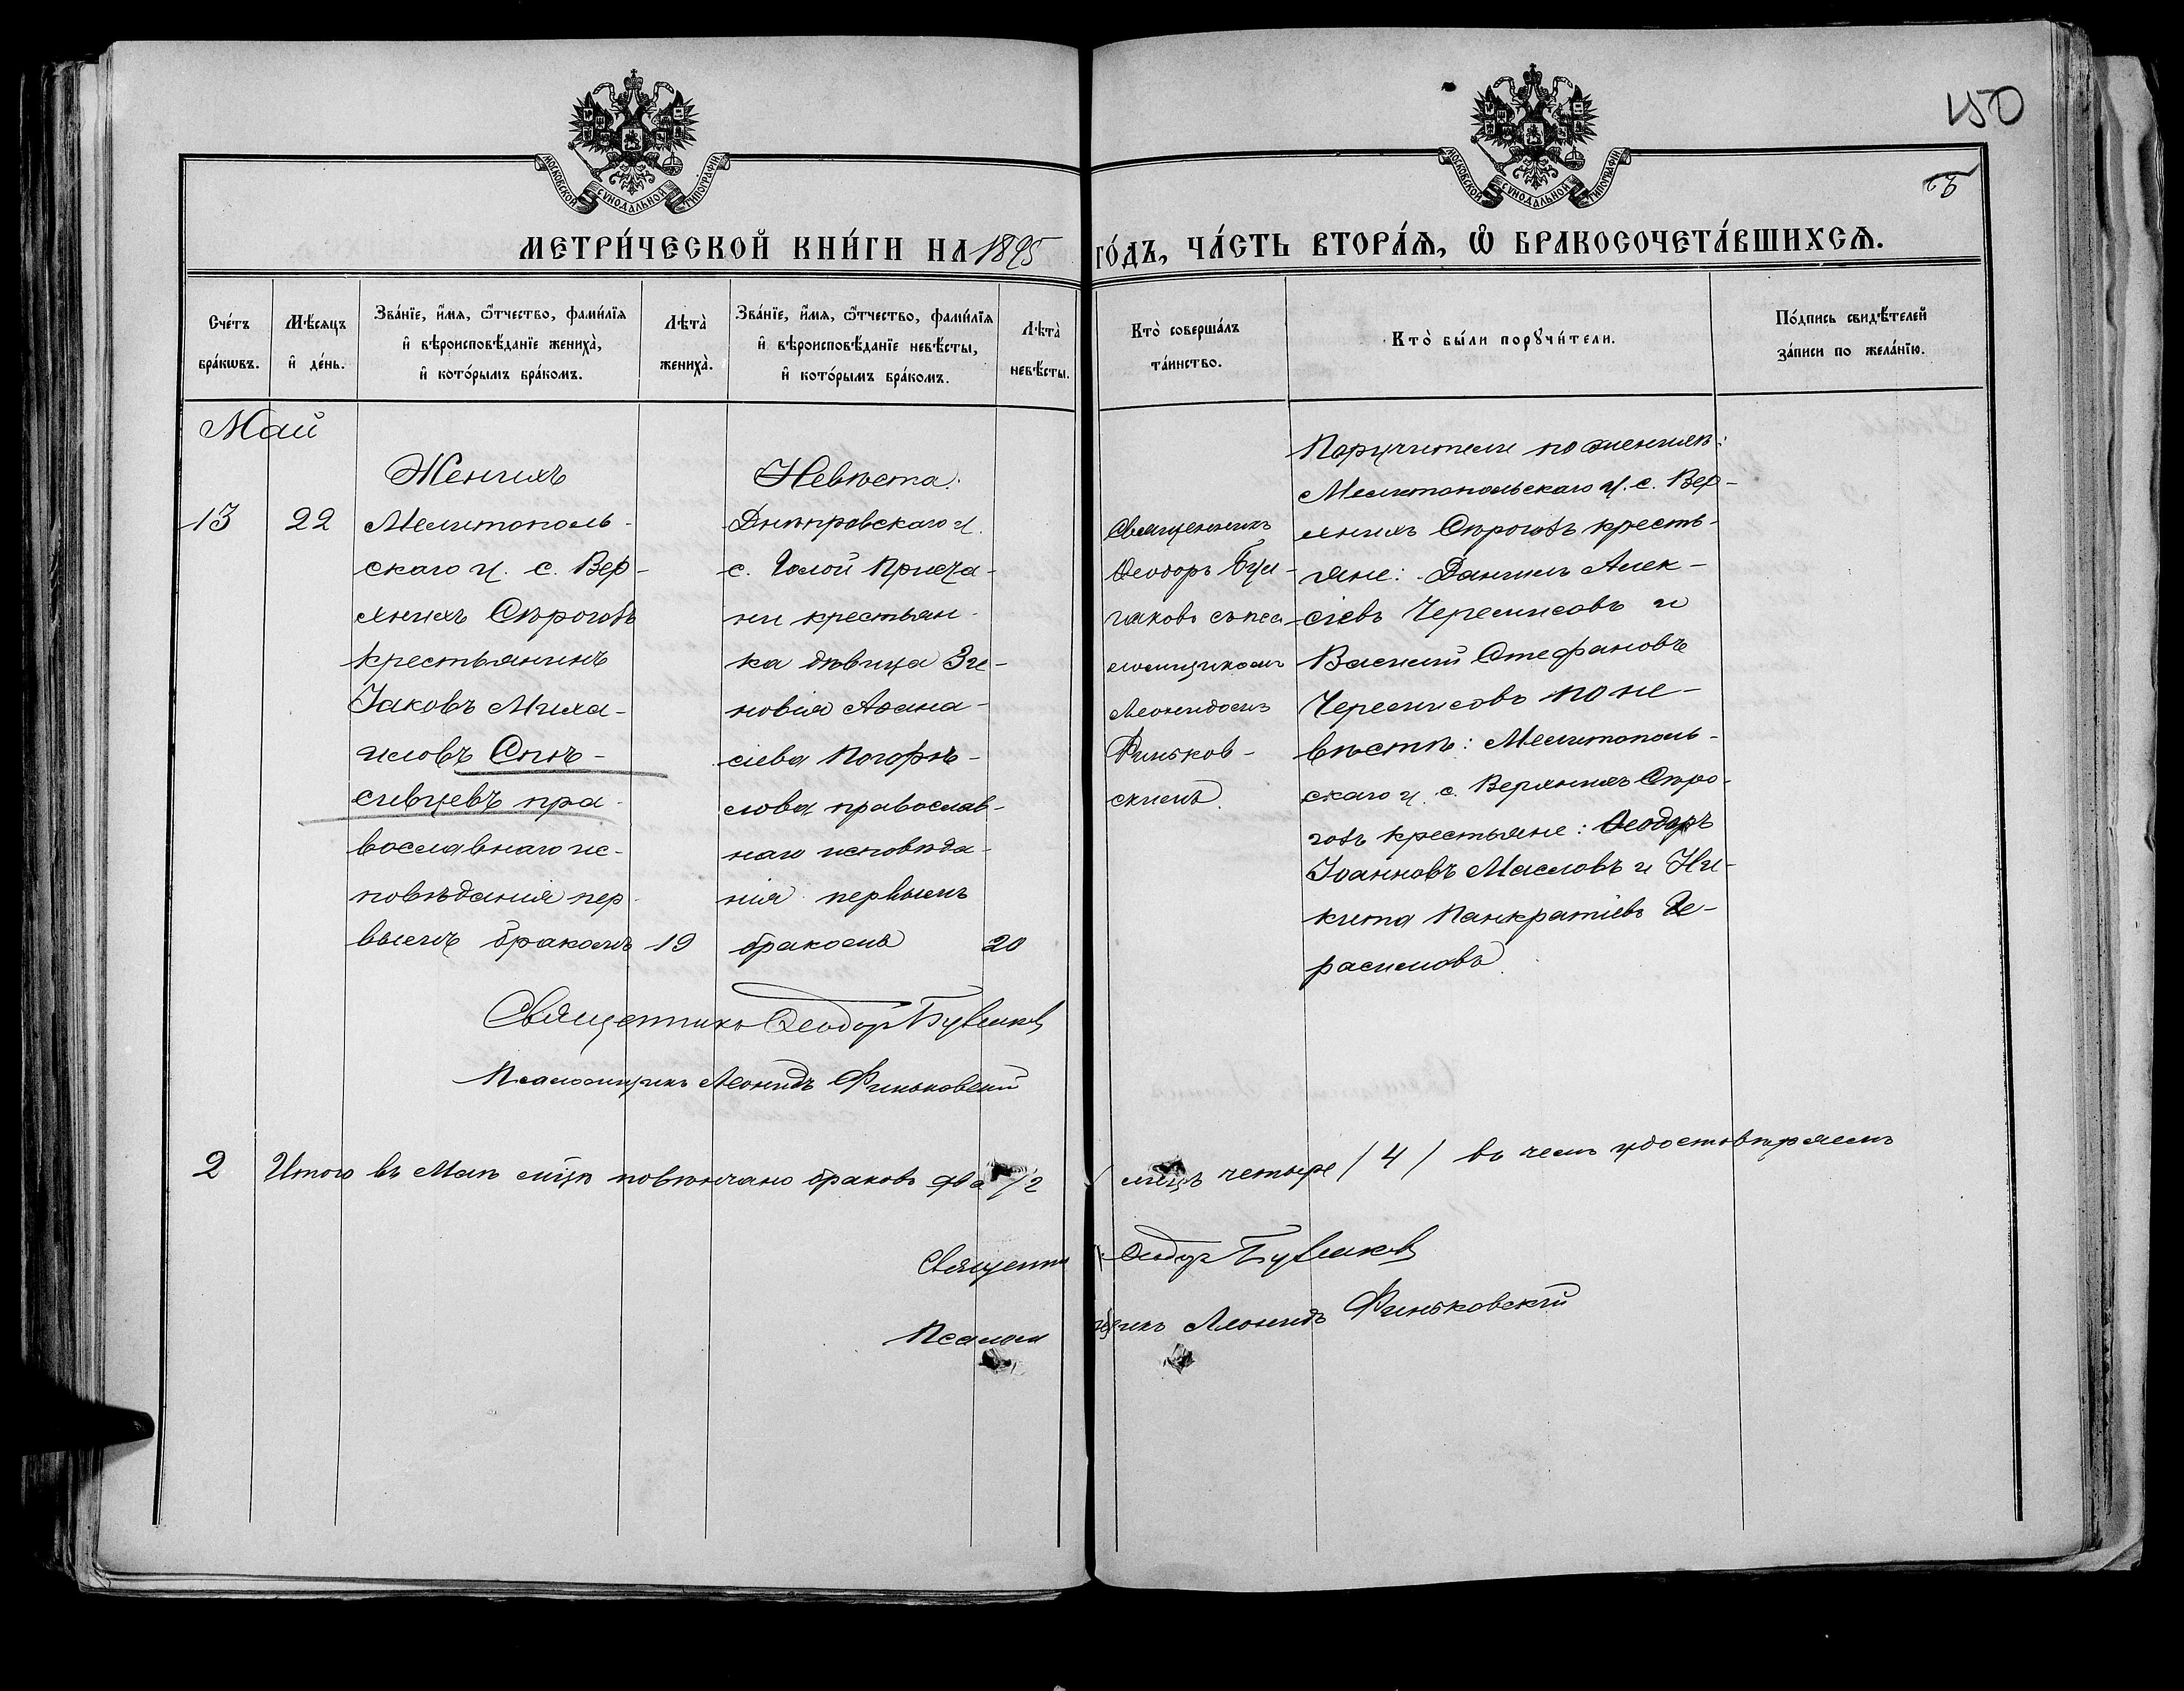 150
МОСКОВСКОЙ СУНОДАЛЬНОЙ ТИПОГРАФІИ
МОСКОВСКОЙ СУНОДАЛЬНОЙ ТИПОГРАФІИ
МЕТРИ́ЧЕСКОЙ КНИ́ГИ НА 1895 ГО́ДЪ, ЧА́СТЬ ВТОРА́Ѧ, Ѽ БРАКОСОЧЕТА́ВШИХСѦ.
Сче́тъ
бра́кѡвъ.
Мѣ́сяцъ
и҆ де́нь.
Зва́нїе, и҆́мѧ, ѻ҆́тчество, фами́лїѧ
и҆ вѣроисповѣ́данїе жениха̀,
и҆ кото́рымъ бра́комъ.
Лѣта̀
жениха̀.
Зва́нїе, и҆́мѧ, ѻ҆́тчество, фами́лїѧ
и҆ вѣроисповѣ́данїе невѣ́сты,
и҆ кото́рымъ бра́комъ.
Лѣта̀
невѣ́сты.
Кто̀ соверша́лъ
та́инство.
Кто̀ бы́ли порꙋчи́тели.
По́дпись свидѣ́телей
за́писи по жела́нїю.
Май
13
22
Женихъ
Мелитополь-
скаго у. с. Вер-
хнихъ Сѣрогозъ
крестьянинъ
Іаковъ Миха-
иловъ
православнаго ис-
повѣданія пер-
вымъ бракомъ
19
Невѣста.
Днѣпровскаго у.
с. Голой Приста-
ни крестьян-
ка дѣвица Зи-
новія Аѳана-
сіева Погорѣ-
лова, православ-
наго исповѣда-
нія первымъ
бракомъ
20
Священникъ
Ѳеодоръ Бул-
гаковъ съ пса-
ломщикомъ
Леонидомъ
Финьков-
скимъ.
Поручители по женихѣ:
Мелитопольскаго у. с. Вер-
хнихъ Сѣрогозъ кресть-
яне: Даніилъ Алек-
сіевъ Черемисовъ и
Василій Стефановъ
Черемисовъ по не-
вѣстѣ: Мелитополь-
скаго у. с. Верхнихъ Сѣро-
гозъ крестьяне: Ѳеодоръ
Іоанновъ Масловъ и Ни-
кита Панкратіевъ Ге-
расимовъ.
Священникъ Ѳеодоръ Булгаковъ
Псаломщикъ Леонидъ Финьковскій
2 Итого въ Маѣ мцѣ повѣнчано браковъ два /2 лицъ четыре /4/ въ чемъ удостовѣряемъ
Священни Ѳеодоръ Булгаковъ
Псалом щикъ Леонидъ Финьковскій